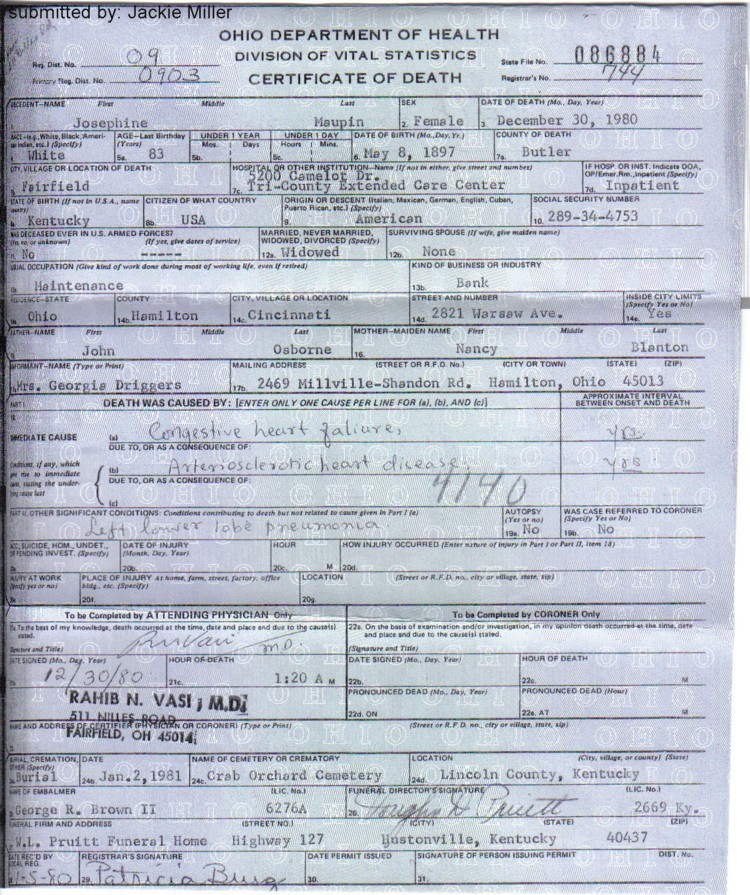 submitted by: Jackie Miller
OHIO DEPARTMENT OF HEALTH
DIVISION OF VITAL STATISTICS
CERTIFICATE OF DEATH
Reg. Dist. No. 09
Primary Reg. Dist. No. 0903
State File No. 086884
Registrar's No. 744
DECEDENT—NAME First Middle Last SEX DATE OF DEATH (Mo., Day, Year)
Josephine Maupin 2. Female 3. December 30, 1980
RACE—(e.g., White, Black, American Indian, etc.) (Specify) AGE—Last Birthday (Years) UNDER 1 YEAR Mos. Days UNDER 1 DAY Hours Mins. DATE OF BIRTH (Mo., Day, Yr.) COUNTY OF DEATH
White 5a. 83 5b. 5c. 6. May 8, 1897 7a. Butler
CITY, VILLAGE OR LOCATION OF DEATH HOSPITAL OR OTHER INSTITUTION—Name (If not in either, give street and number) IF HOSP OR INST. Indicate DOA, OP/Emer. Rm., Inpatient (Specify)
5200 Camelot Dr.
Fairfield 7c. Tri-County Extended Care Center 7d. Inpatient
STATE OF BIRTH (If not in U.S.A., name country) CITIZEN OF WHAT COUNTRY ORIGIN OR DESCENT (Italian, Mexican, German, English, Cuban, Puerto Rican, etc.) (Specify) SOCIAL SECURITY NUMBER
Kentucky 8b. USA 9. American 10. 289-34-4753
WAS DECEASED EVER IN U.S. ARMED FORCES? (Yes, no, or unknown) (If yes, give dates of service) MARRIED, NEVER MARRIED, WIDOWED, DIVORCED (Specify) SURVIVING SPOUSE (If wife, give maiden name)
No ----- 12a. Widowed 12b. None
USUAL OCCUPATION (Give kind of work done during most of working life, even if retired) KIND OF BUSINESS OR INDUSTRY
Maintenance 13b. Bank
RESIDENCE—STATE COUNTY CITY, VILLAGE OR LOCATION STREET AND NUMBER INSIDE CITY LIMITS (Specify Yes or No)
Ohio 14b. Hamilton 14c. Cincinnati 14d. 2821 Warsaw Ave. 14e. Yes
FATHER—NAME First Middle Last MOTHER—MAIDEN NAME First Middle Last
John Osborne 16. Nancy Blanton
INFORMANT—NAME (Type or Print) MAILING ADDRESS (STREET OR R.F.D. No.) (CITY OR TOWN) (STATE) (ZIP)
Mrs. Georgia Driggers 17b. 2469 Millville-Shandon Rd. Hamilton, Ohio 45013
PART I DEATH WAS CAUSED BY: [ENTER ONLY ONE CAUSE PER LINE FOR (a), (b), AND (c)] APPROXIMATE INTERVAL BETWEEN ONSET AND DEATH
IMMEDIATE CAUSE (a) Congestive heart faliure, yrs.
DUE TO, OR AS A CONSEQUENCE OF:
Conditions, if any, which gave rise to immediate cause, stating the underlying cause last (b) Arteriosclerotic heart disease. yrs
DUE TO, OR AS A CONSEQUENCE OF: 4140
(c)
PART II. OTHER SIGNIFICANT CONDITIONS: Conditions contributing to death but not related to cause given in Part I (a) AUTOPSY (Yes or no) WAS CASE REFERRED TO CORONER (Specify Yes or No)
Left lower lobe pneumonia 19a. No 19b. No
ACC, SUICIDE, HOM., UNDET., OR PENDING INVEST. (Specify) DATE OF INJURY (Month, Day, Year) HOUR HOW INJURY OCCURRED (Enter nature of injury in Part I or Part II, item 18)
20b. 20c. M 20d.
INJURY AT WORK (Specify yes or no) PLACE OF INJURY At home, farm, street, factory, office bldg., etc. (Specify) LOCATION (Street or R.F.D. no., city or village, state, zip)
20f. 20g.
To be Completed by ATTENDING PHYSICIAN Only To be Completed by CORONER Only
To the best of my knowledge, death occurred at the time, date and place and due to the cause(s) stated. 22a. On the basis of examination and/or investigation, in my opinion death occurred at the time, date and place and due to the cause(s) stated.
(Signature and Title) M.D. (Signature and Title)
DATE SIGNED (Mo., Day, Year) HOUR OF DEATH DATE SIGNED (Mo., Day, Year) HOUR OF DEATH
12/30/80 21c. 1:20 A M 22b. 22c. M
RAHIB N. VASI, M.D. PRONOUNCED DEAD (Mo., Day, Year) PRONOUNCED DEAD (Hour)
511 NILLES ROAD 22d. ON 22e. AT M
NAME AND ADDRESS OF CERTIFIER (PHYSICIAN OR CORONER) (Type or Print) (Street or R.F.D. no., city or village, state, zip)
FAIRFIELD, OH 45014
BURIAL, CREMATION, OTHER (Specify) DATE NAME OF CEMETERY OR CREMATORY LOCATION (City, village, or county) (State)
Burial 24b. Jan.2,1981 24c. Crab Orchard Cemetery 24d. Lincoln County, Kentucky
NAME OF EMBALMER (LIC. No.) FUNERAL DIRECTOR'S SIGNATURE (LIC. No.)
George R. Brown II 6276A 26. Douglas D Pruitt 2669 Ky.
FUNERAL FIRM AND ADDRESS (STREET NO.) (CITY) (STATE) (ZIP)
W.L. Pruitt Funeral Home Highway 127 Hustonville, Kentucky 40437
DATE REC'D BY LOCAL REG. REGISTRAR'S SIGNATURE DATE PERMIT ISSUED SIGNATURE OF PERSON ISSUING PERMIT DIST. No.
1-5-80 29. Patricia Burg 30. 31.